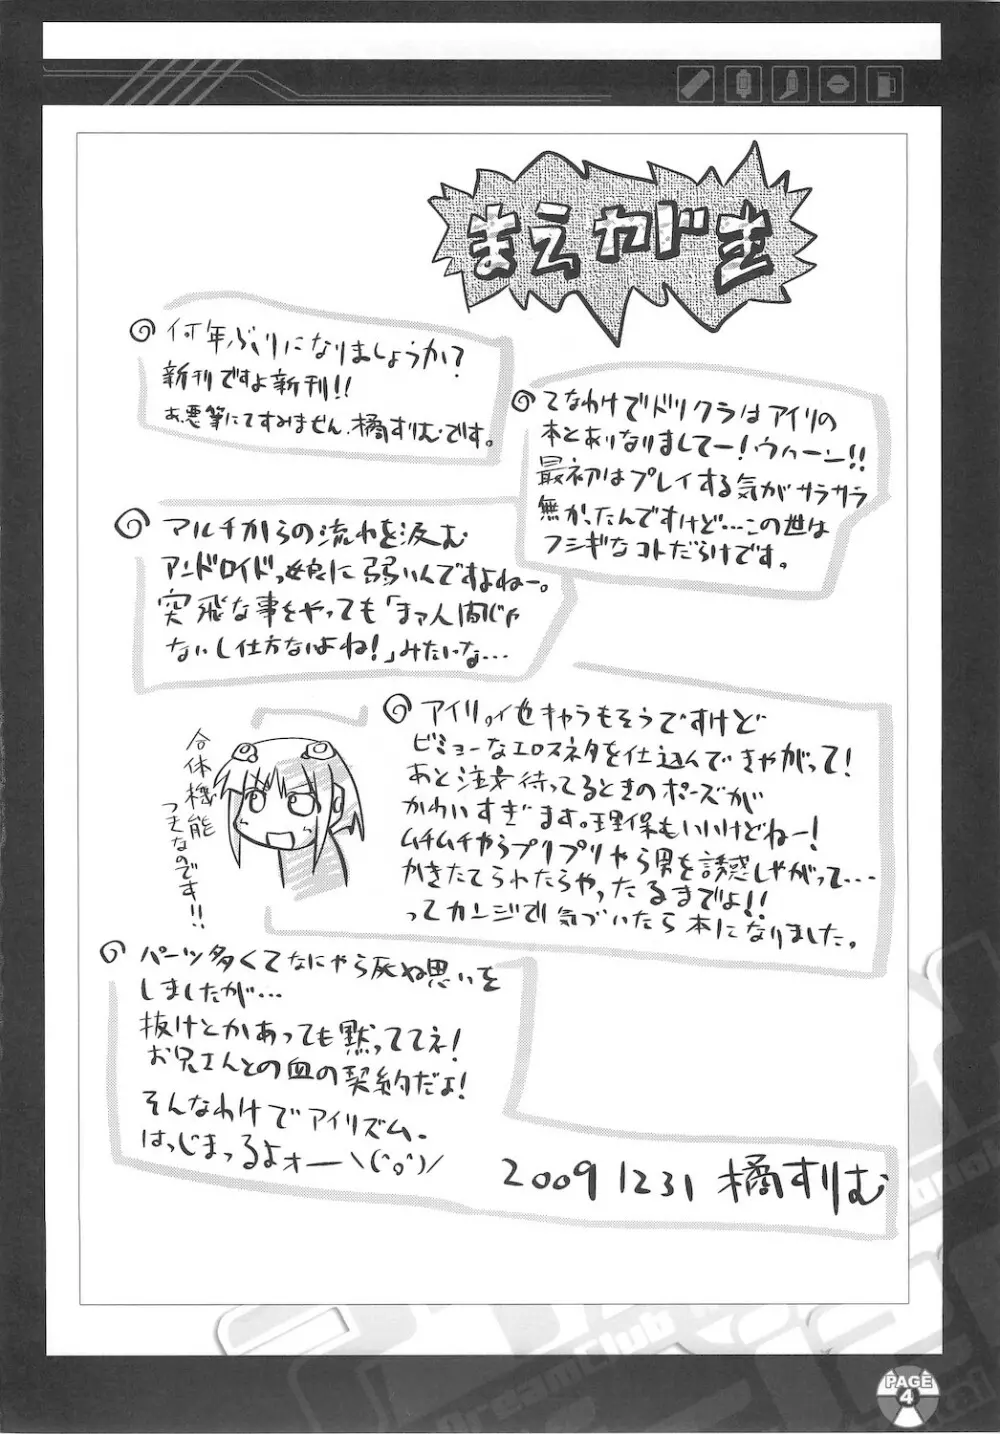 まえがき
何年ぶりになりましょうか?
新刊ですよ新刊!!
あ、悪筆にてすみません、橘すりむです。
てなわけでドリクラはアイリの
本とあいなりましてー!ウハーン!!
最初はプレイする気がサラサラ
無かったんですけど…この世は
フシギなコトだらけです。
マルチからの流れを汲む
アンドロイドっ娘に弱いんですよねー。
突飛な事をやっても「まァ人間じゃ
ないし仕方ないよね!」みたいな…
アイリの他キャラもそうですけど
ビミョーなエロスネタを仕込んできやがって!
あと注文待ってるときのポーズが
かわいすぎます。理保もいいけどねー!
ムチムチやらプリプリやら男を誘惑しやがって…
かきたてられたらやったるまでよ!!
ってカンジで気づいたら本になりました。
合体機能
つきなのです!!
パーツ多くてなにやら死ぬ思いを
しましたが…
抜けとかあっても黙っててネ!
お兄さんとの血の契約だよ!
そんなわけでアイリズム、
はっじまっるよォー\(^o^)/
2009 1231 橘すりむ
PAGE
4